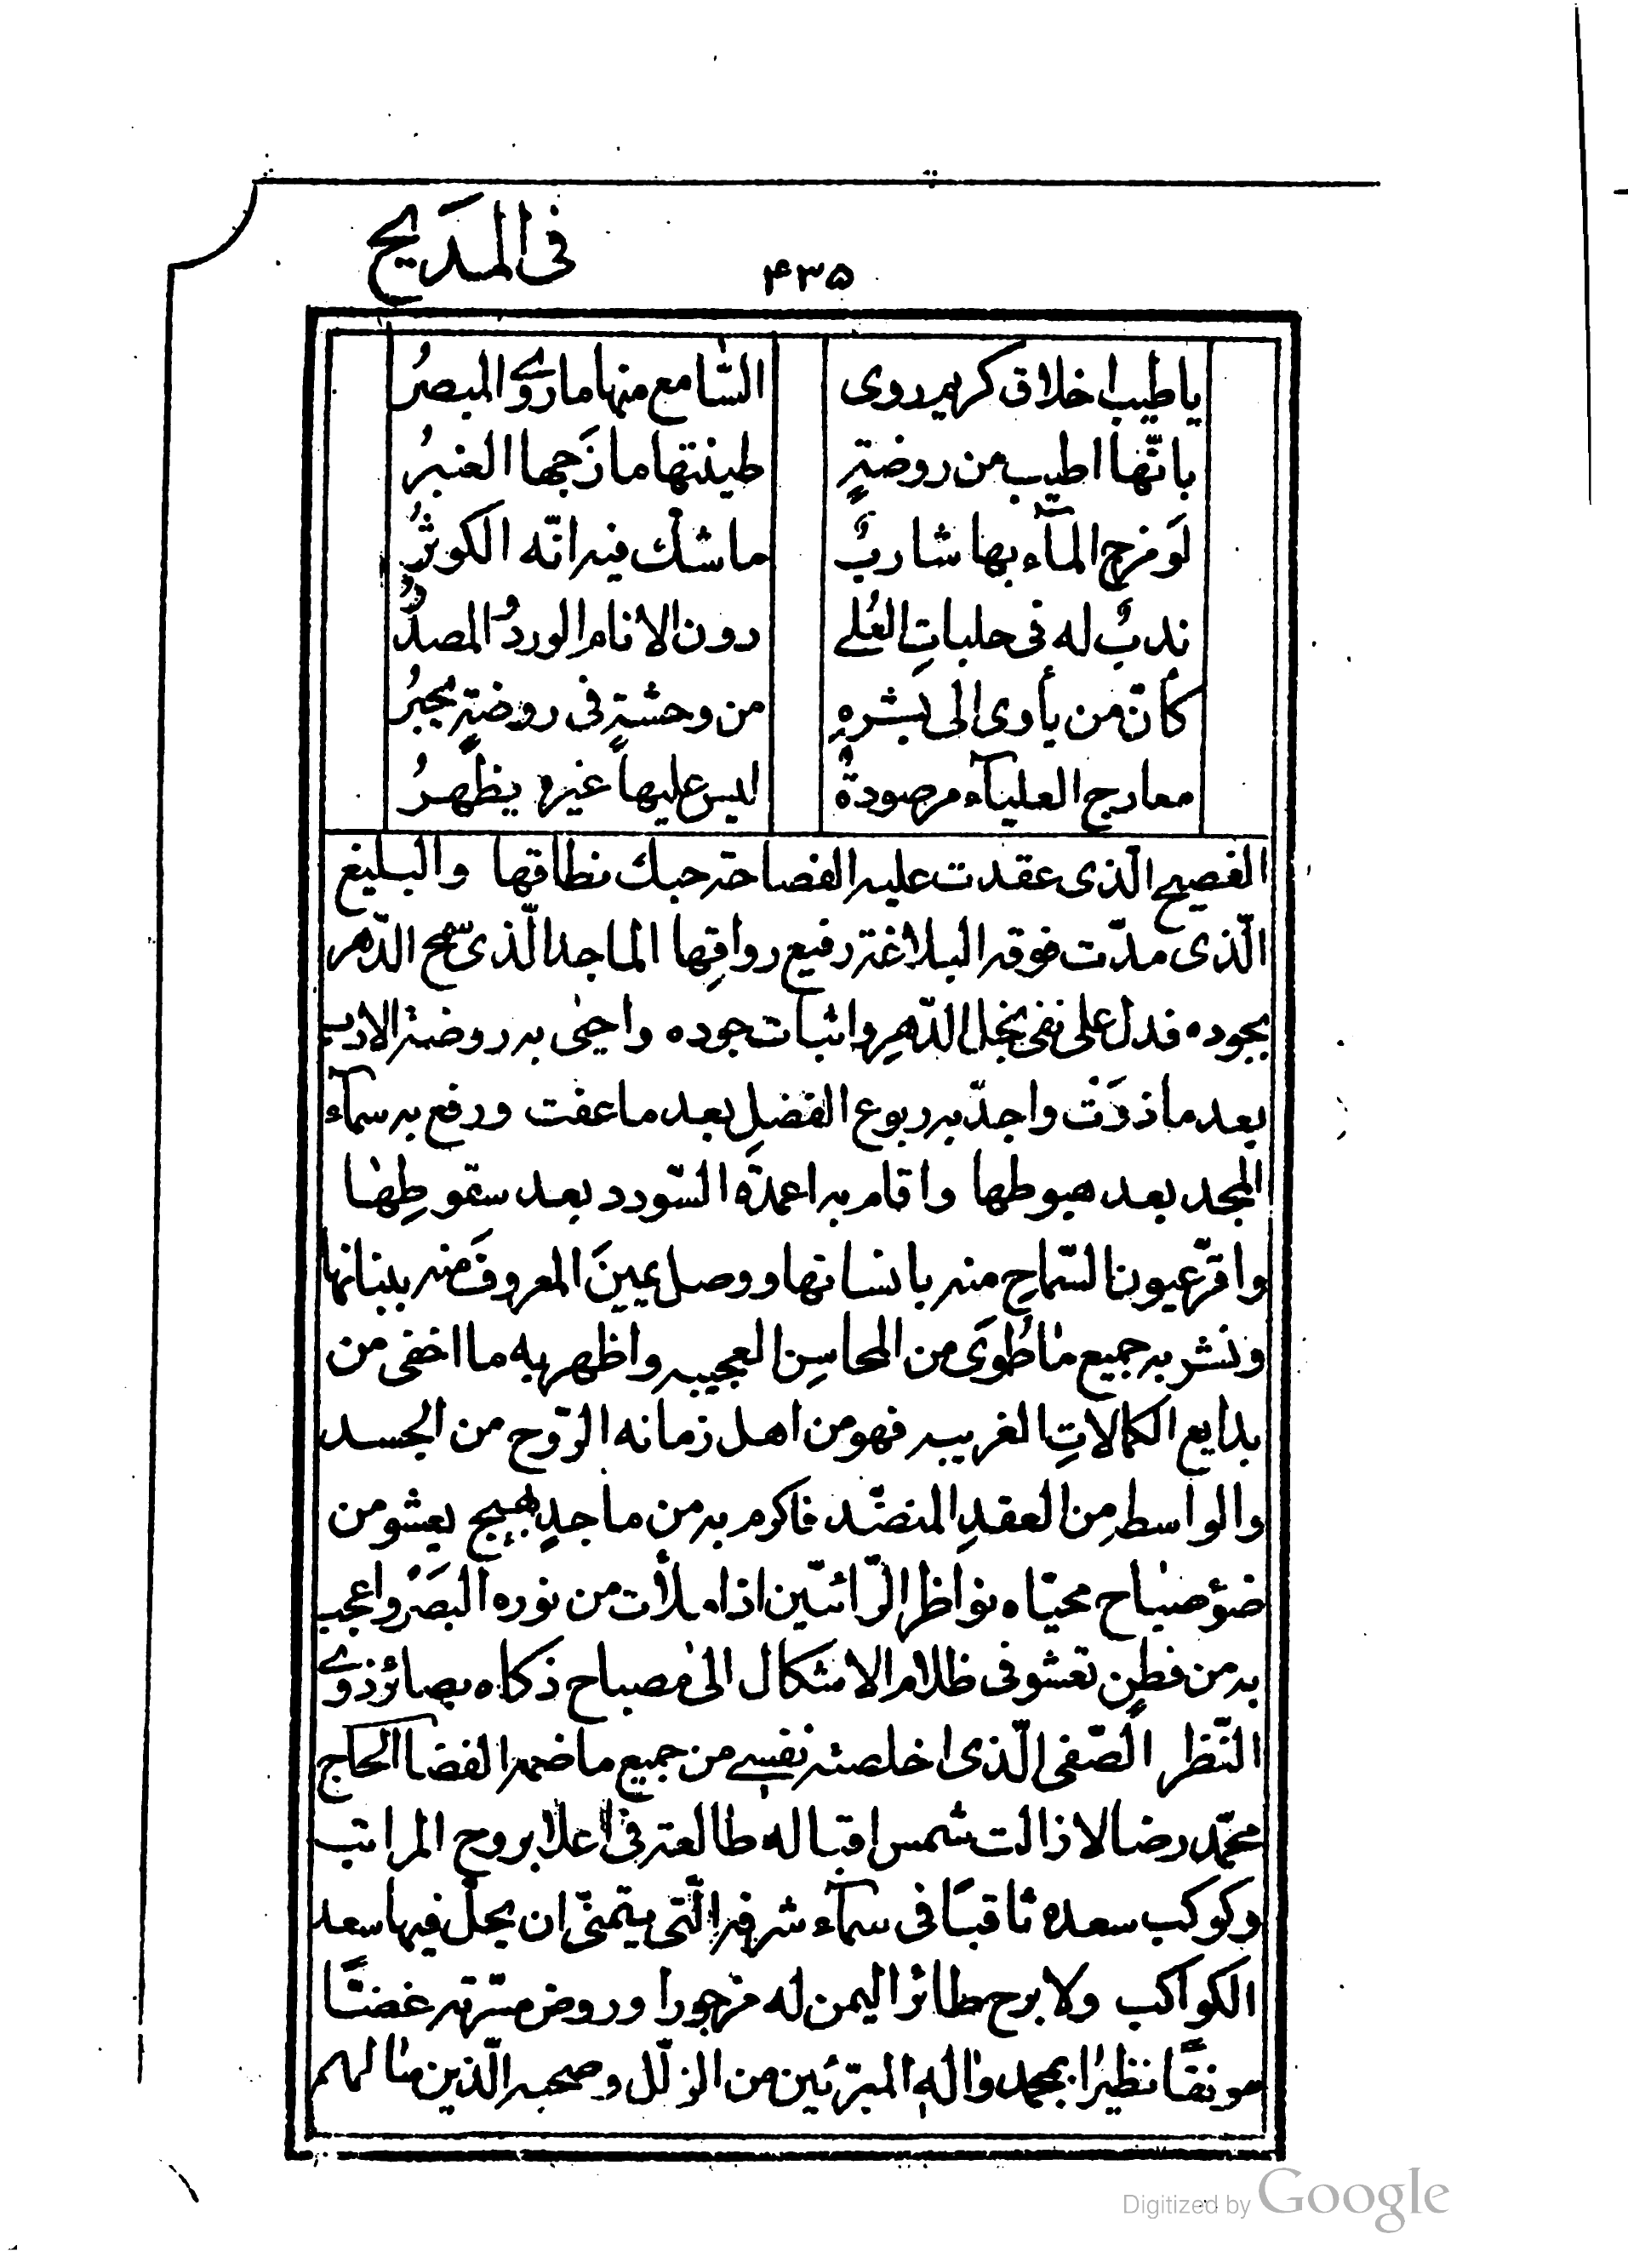 فى المَديح
۴۳۵
ياطيب اخلاق كريم روى السّامع منها ماروى المبصرُ
بانّها اطيب من روضةٍ طينتها مازَجها العنبرُ
لَو مزج المآء بها شاربٌ ما شكّ فيه انّه الكوثرُ
ندبٌ له فى حلباتِ العُلى دون الانام الوردُ والمصدرُ
كأنّ من يأوى الى بشرهِ من وحشةٍ فى روضةٍ يحبرُ
معارج العليآء مرصودةٌ ليس عليها غيره يظهرُ
الفصيح الّذى عقدت عليه الفصاحة حبك نطاقها والبليغ
الّذى مدّت فوقه البلاغة رفيع رواقِها الماجد الّذى سمح الدّهر
بجوده فدل على نفى بخل الدّهرِ واثبات جوده واحيٰى به روضة الادب
بعد ما ذوَت واجدّ به ربوع الفضلِ بعد ما عفت ورفع به سمآء
المجد بعد هبوطها واقام به اعمدة السّودد بعد سقوطِها
واقرّ عيون السّماحِ منه بانسانها ووصل يمينَ المعروف منه ببنانها
ونشر به جميع ما طُوىَ من المحاسِن العجيبه واظهر به ما اخفى من
بدايع الكمالاتِ الغريبه فهو من اهل زمانه الرّوح من الجسد
والواسطه من العقدِ المنضّد فاكرم به من ماجدٍ بهيج يعشو من
ضوء صباح محيّاه نواظر الرّائين اذا ملأت من نوره البصَر واعجب
به من فطنٍ تعشو فى ظلام الاشكال الىٰ مصباح ذكاه بصائر ذوى
النّظر الصّفى الّذى اخلصته نفسى من جميع ما ضمه الفضا الحاج
محمّد رضا لا زالت شمس اقباله طالعة فى اعلا بروج المراتب
وكوكب سعده ثاقبًا فى سمآء شرفه الّتى يتمنّى ان يحلّ فيها سعد
الكواكب ولا برح طائر اليمن له مزجورا وروض مسّرته غضًّا
مونقًا نظيرًا بمحمد واٰله المبرّئين من الزلل وصحبه الّذين ما لهم
Digitized by Google